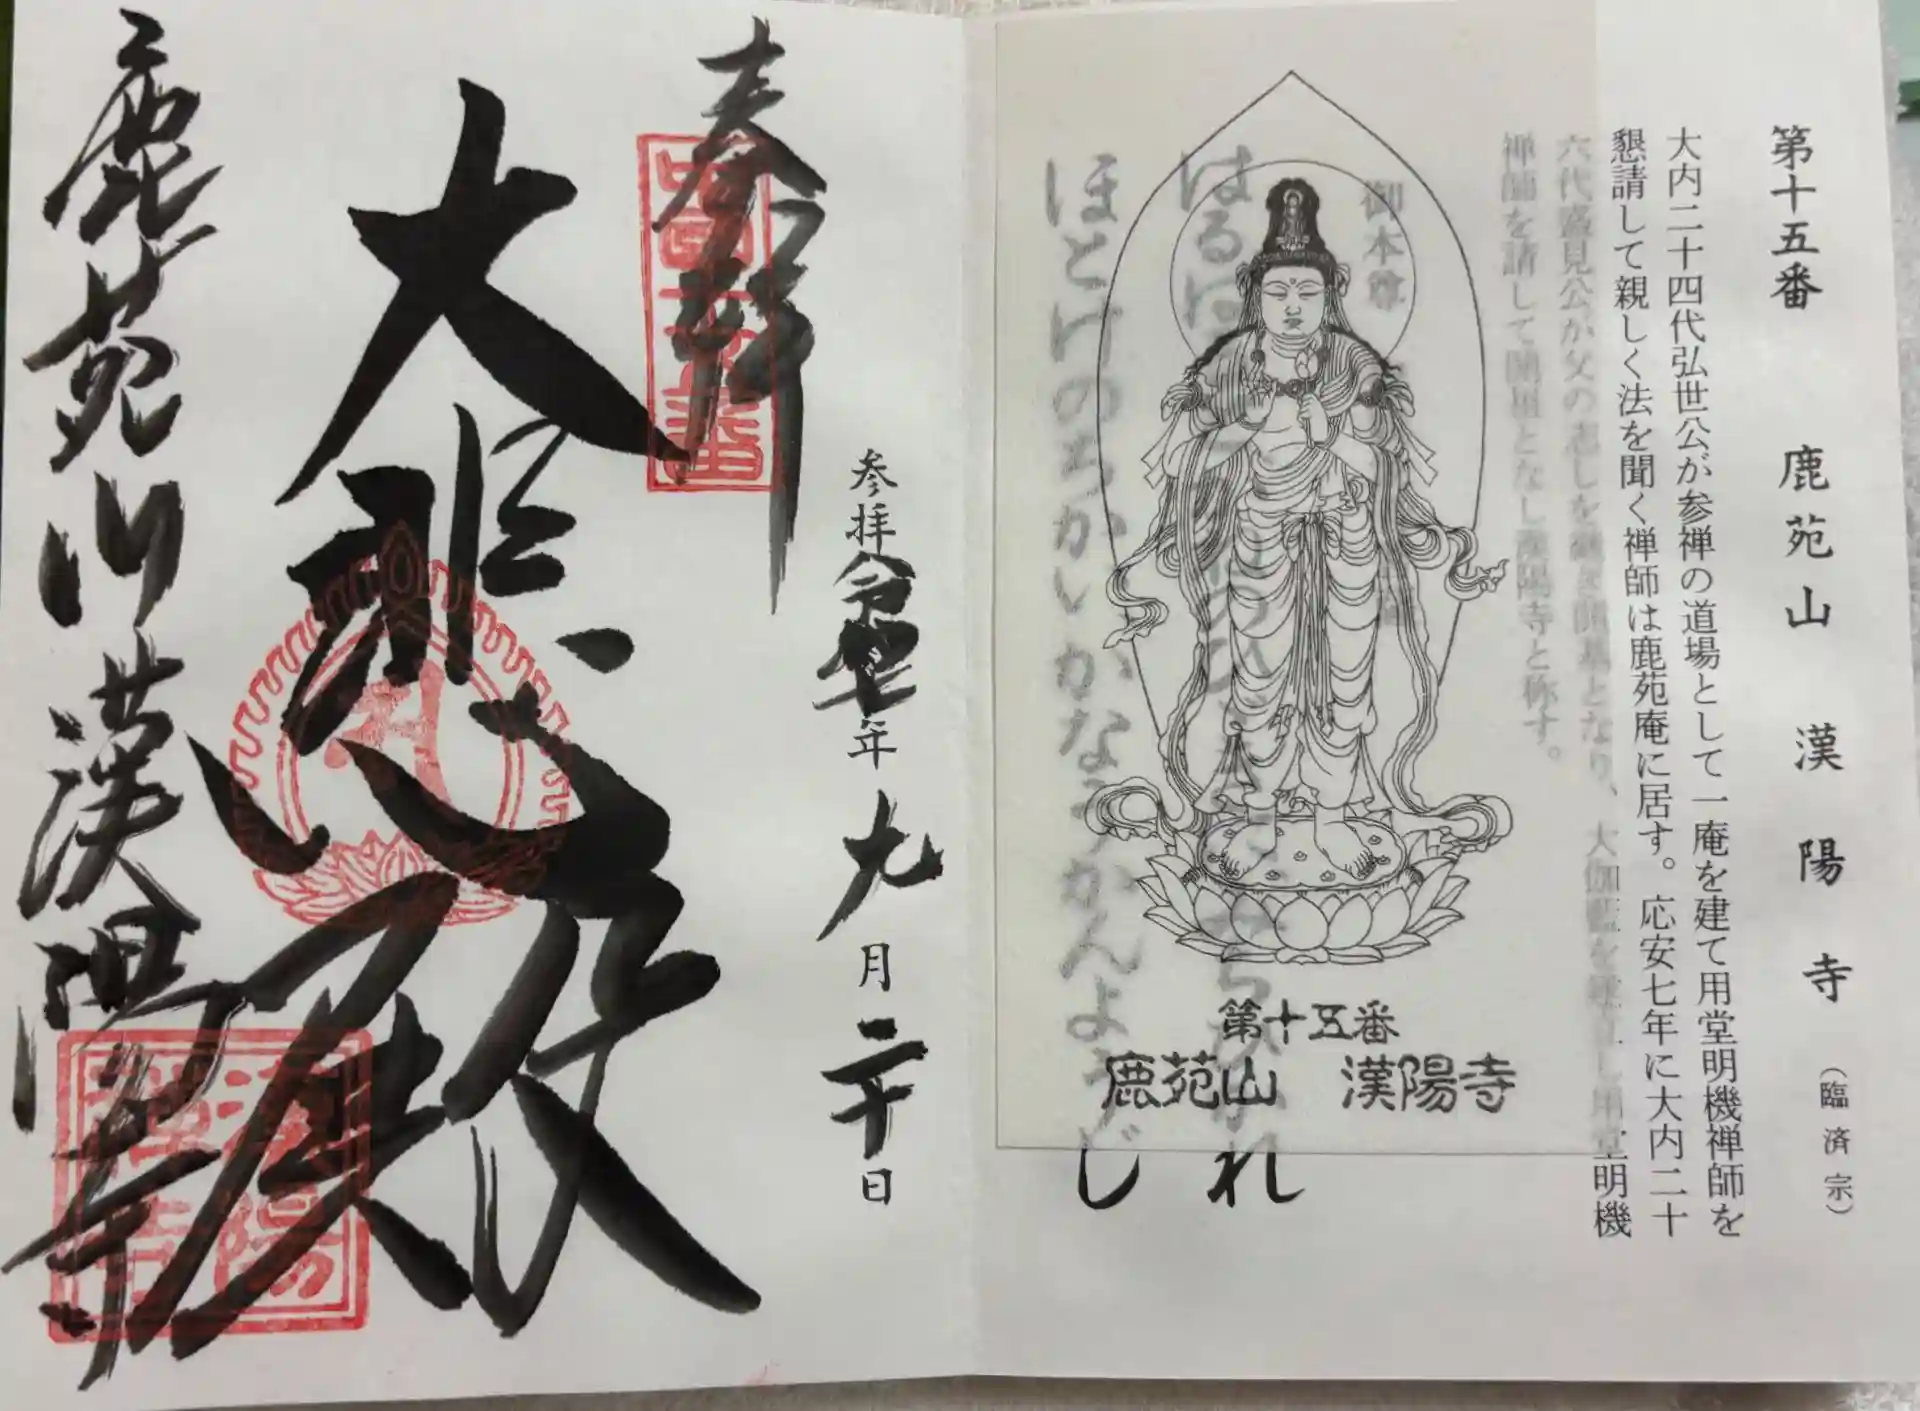 第十五番 鹿苑山 漢陽寺 (臨済宗)
大内二十四代弘世公が参禅の道場として一庵を建て用堂明機禅師を
懇請して親しく法を聞く禅師は鹿苑庵に居す。応安七年に大内二十
六代盛見公が父の志しを継ぎ開基となり、大伽藍を建立し用堂明機
禅師を請して開祖となし漢陽寺と称す。
御本尊
ほとけのちかいかなうかんようじ
第十五番
鹿苑山 漢陽寺
奉拝
中国十五番
参拝令和二年九月二十日
大悲殿
鹿苑山漢陽寺